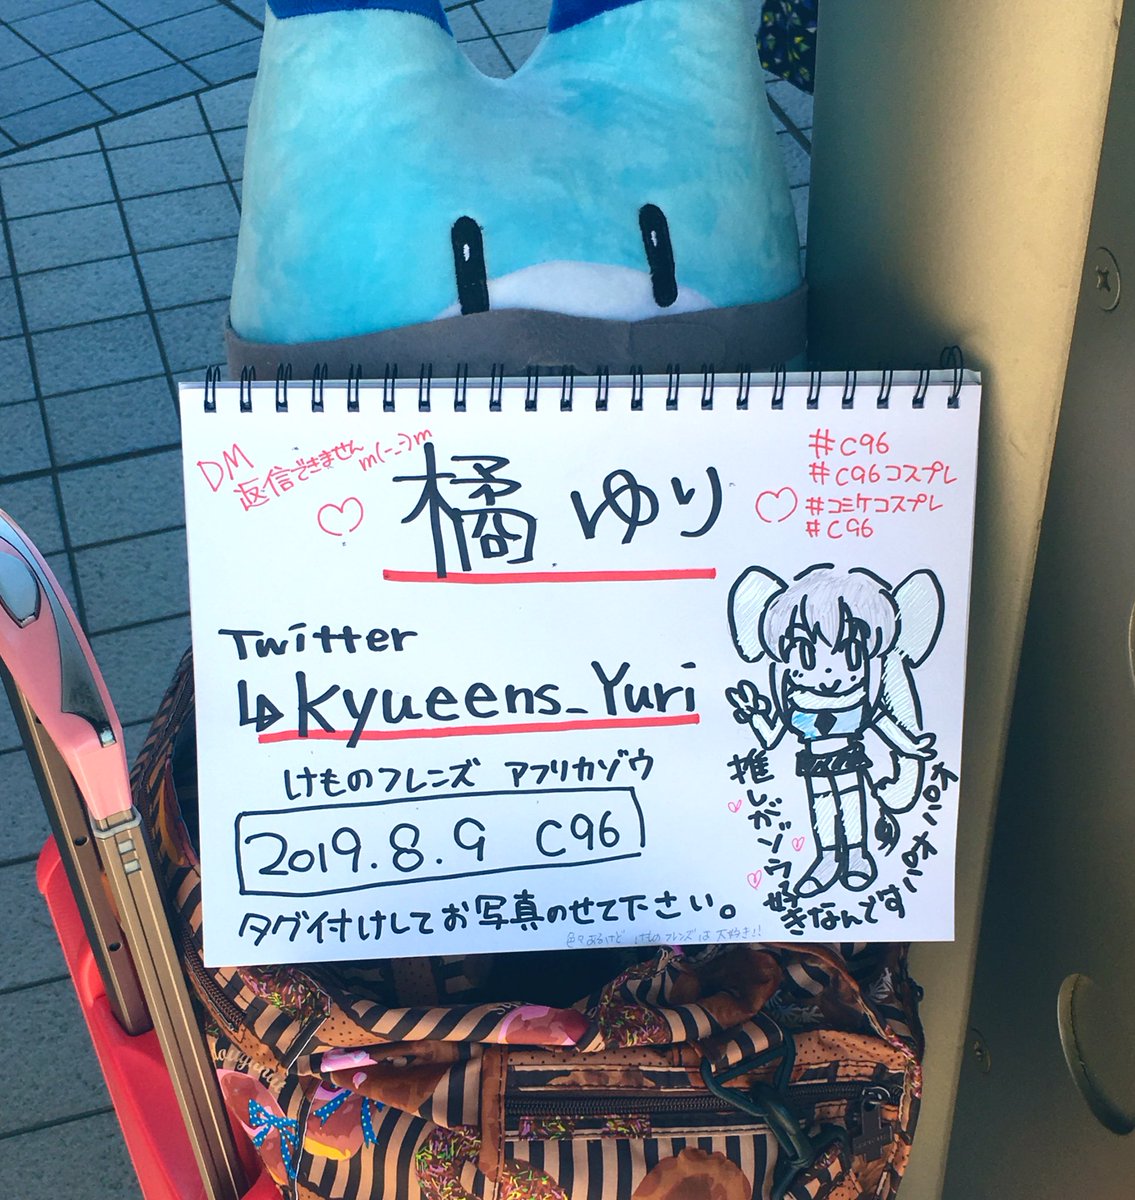 DM
返信できません
m(-_-)m
橘 ゆり
#C96
#C96コスプレ
#コミケコスプレ
#C96
Twitter
↳kyueens_Yuri
けものフレンズ アフリカゾウ
2019.8.9 C96
タグ付けしてお写真のせて下さい。
色々あるけど けものフレンズは大好き!!
推しがゾウ
好きなんです